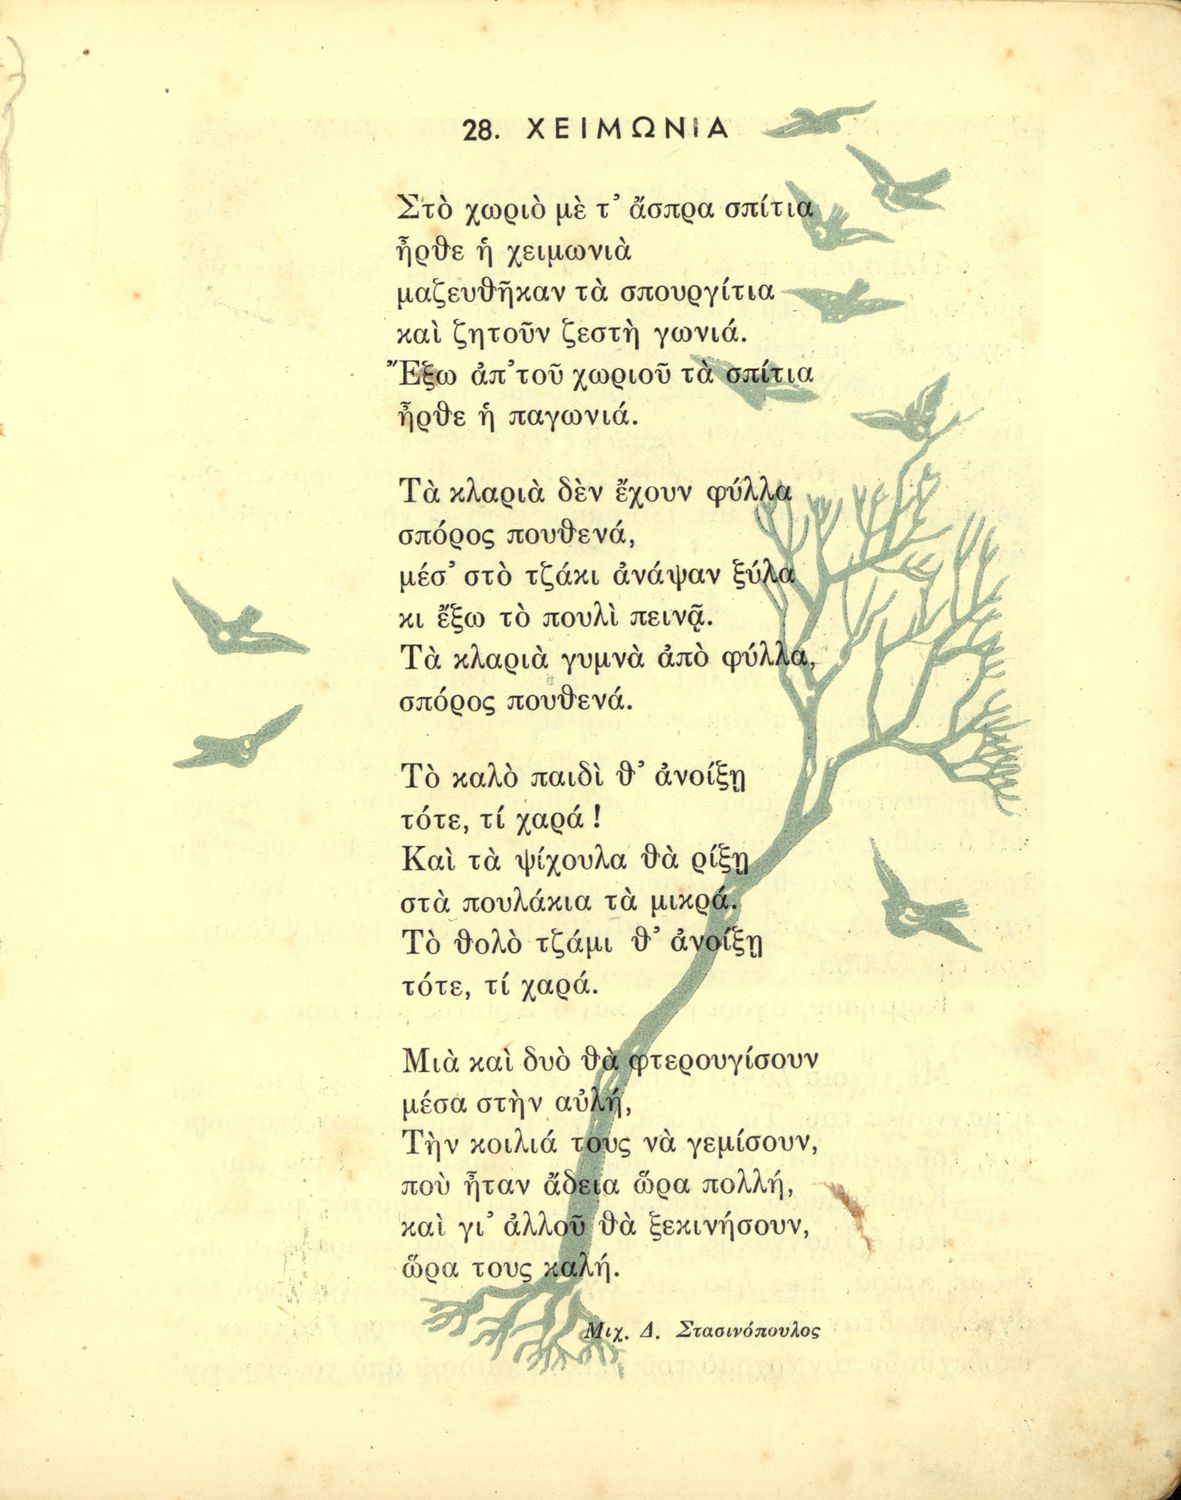 28. ΧΕΙΜΩΝΙΑ
Στὸ χωριὸ μὲ τ' ἄσπρα σπίτια
ἦρθε ἡ χειμωνιὰ
μαζευθῆκαν τὰ σπουργίτια
καὶ ζητοῦν ζεστὴ γωνιά.
Ἔξω ἀπ'τοῦ χωριοῦ τὰ σπίτια
ἦρθε ἡ παγωνιά.
Τὰ κλαριὰ δὲν ἔχουν φύλλα
σπόρος πουθενά,
μέσ' στὸ τζάκι ἀνάψαν ξύλα
κι ἔξω τὸ πουλὶ πεινᾷ.
Τὰ κλαριὰ γυμνὰ ἀπὸ φύλλα,
σπόρος πουθενά.
Τὸ καλὸ παιδὶ θ' ἀνοίξῃ
τότε, τί χαρά !
Καὶ τὰ ψίχουλα θὰ ρίξῃ
στὰ πουλάκια τὰ μικρά.
Τὸ θολὸ τζάμι θ' ἀνοίξῃ
τότε, τί χαρά.
Μιὰ καὶ δυὸ θὰ φτερουγίσουν
μέσα στὴν αὐλή,
Τὴν κοιλιά τους νὰ γεμίσουν,
ποὺ ἦταν ἄδεια ὥρα πολλή,
καὶ γι' ἀλλοῦ θὰ ξεκινήσουν,
ὥρα τους καλή.
Μιχ. Δ. Στασινόπουλος